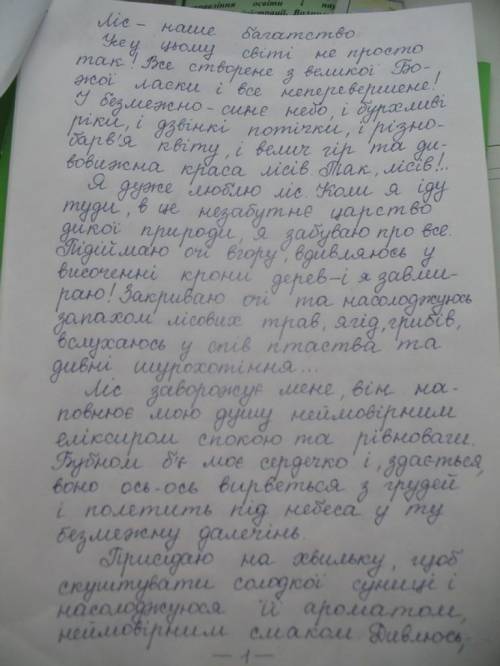 Ліс – наше багатство.
Усе у цьому світі не просто
так! Все створене з великої Бо-
жої ласки і все неперевершене!
І безмежно-синє небо, і бурхливі
ріки, і дзвінкі потічки, і різно-
барв'я квіту, і велич гір та ди-
вовижна краса лісів. Так, лісів!..
Я дуже люблю ліс. Коли я іду
туди, в це незабутнє царство
дикої природи, я забуваю про все.
Підіймаю очі вгору, вдивляюсь у
височенні крони дерев – і я завми-
раю! Закриваю очі та насолоджуюсь
запахом лісових трав, ягід, грибів,
вслухаюсь у спів птаства та
дивні шурхотіння...
Ліс заворожує мене, він на-
повнює мою душу неймовірним
еліксиром спокою та рівноваги.
Бубном б'є моє сердечко і, здається,
воно ось-ось вирветься з грудей
і полетить під небеса у ту
безмежну далечінь.
Присідаю на хвильку, щоб
скуштувати солодкої суниці і
насолоджуюся її ароматом,
неймовірним смаком. Дивлюсь,
– 1 –